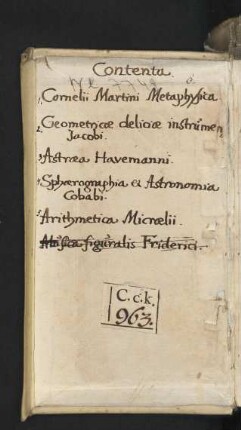 Contenta
Cornelii Martini Metaphysica
Geometricæ deliciæ instrumen
Jacobi.
Astræa Havemanni.
Sphærographia et Astronomia
Cobabi.
Arithmetica Micrælii.
Musica figuralis Friderici.
C.c.k.
963.